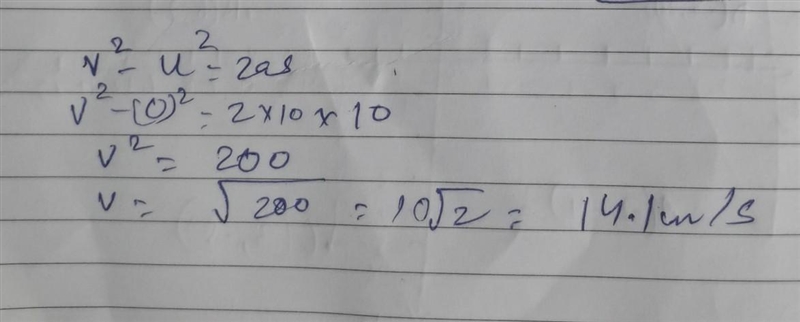 v² - u² = 2as
v² - (0)² = 2×10×10
v² = 200
v = √200 = 10√2 = 14.1m/s